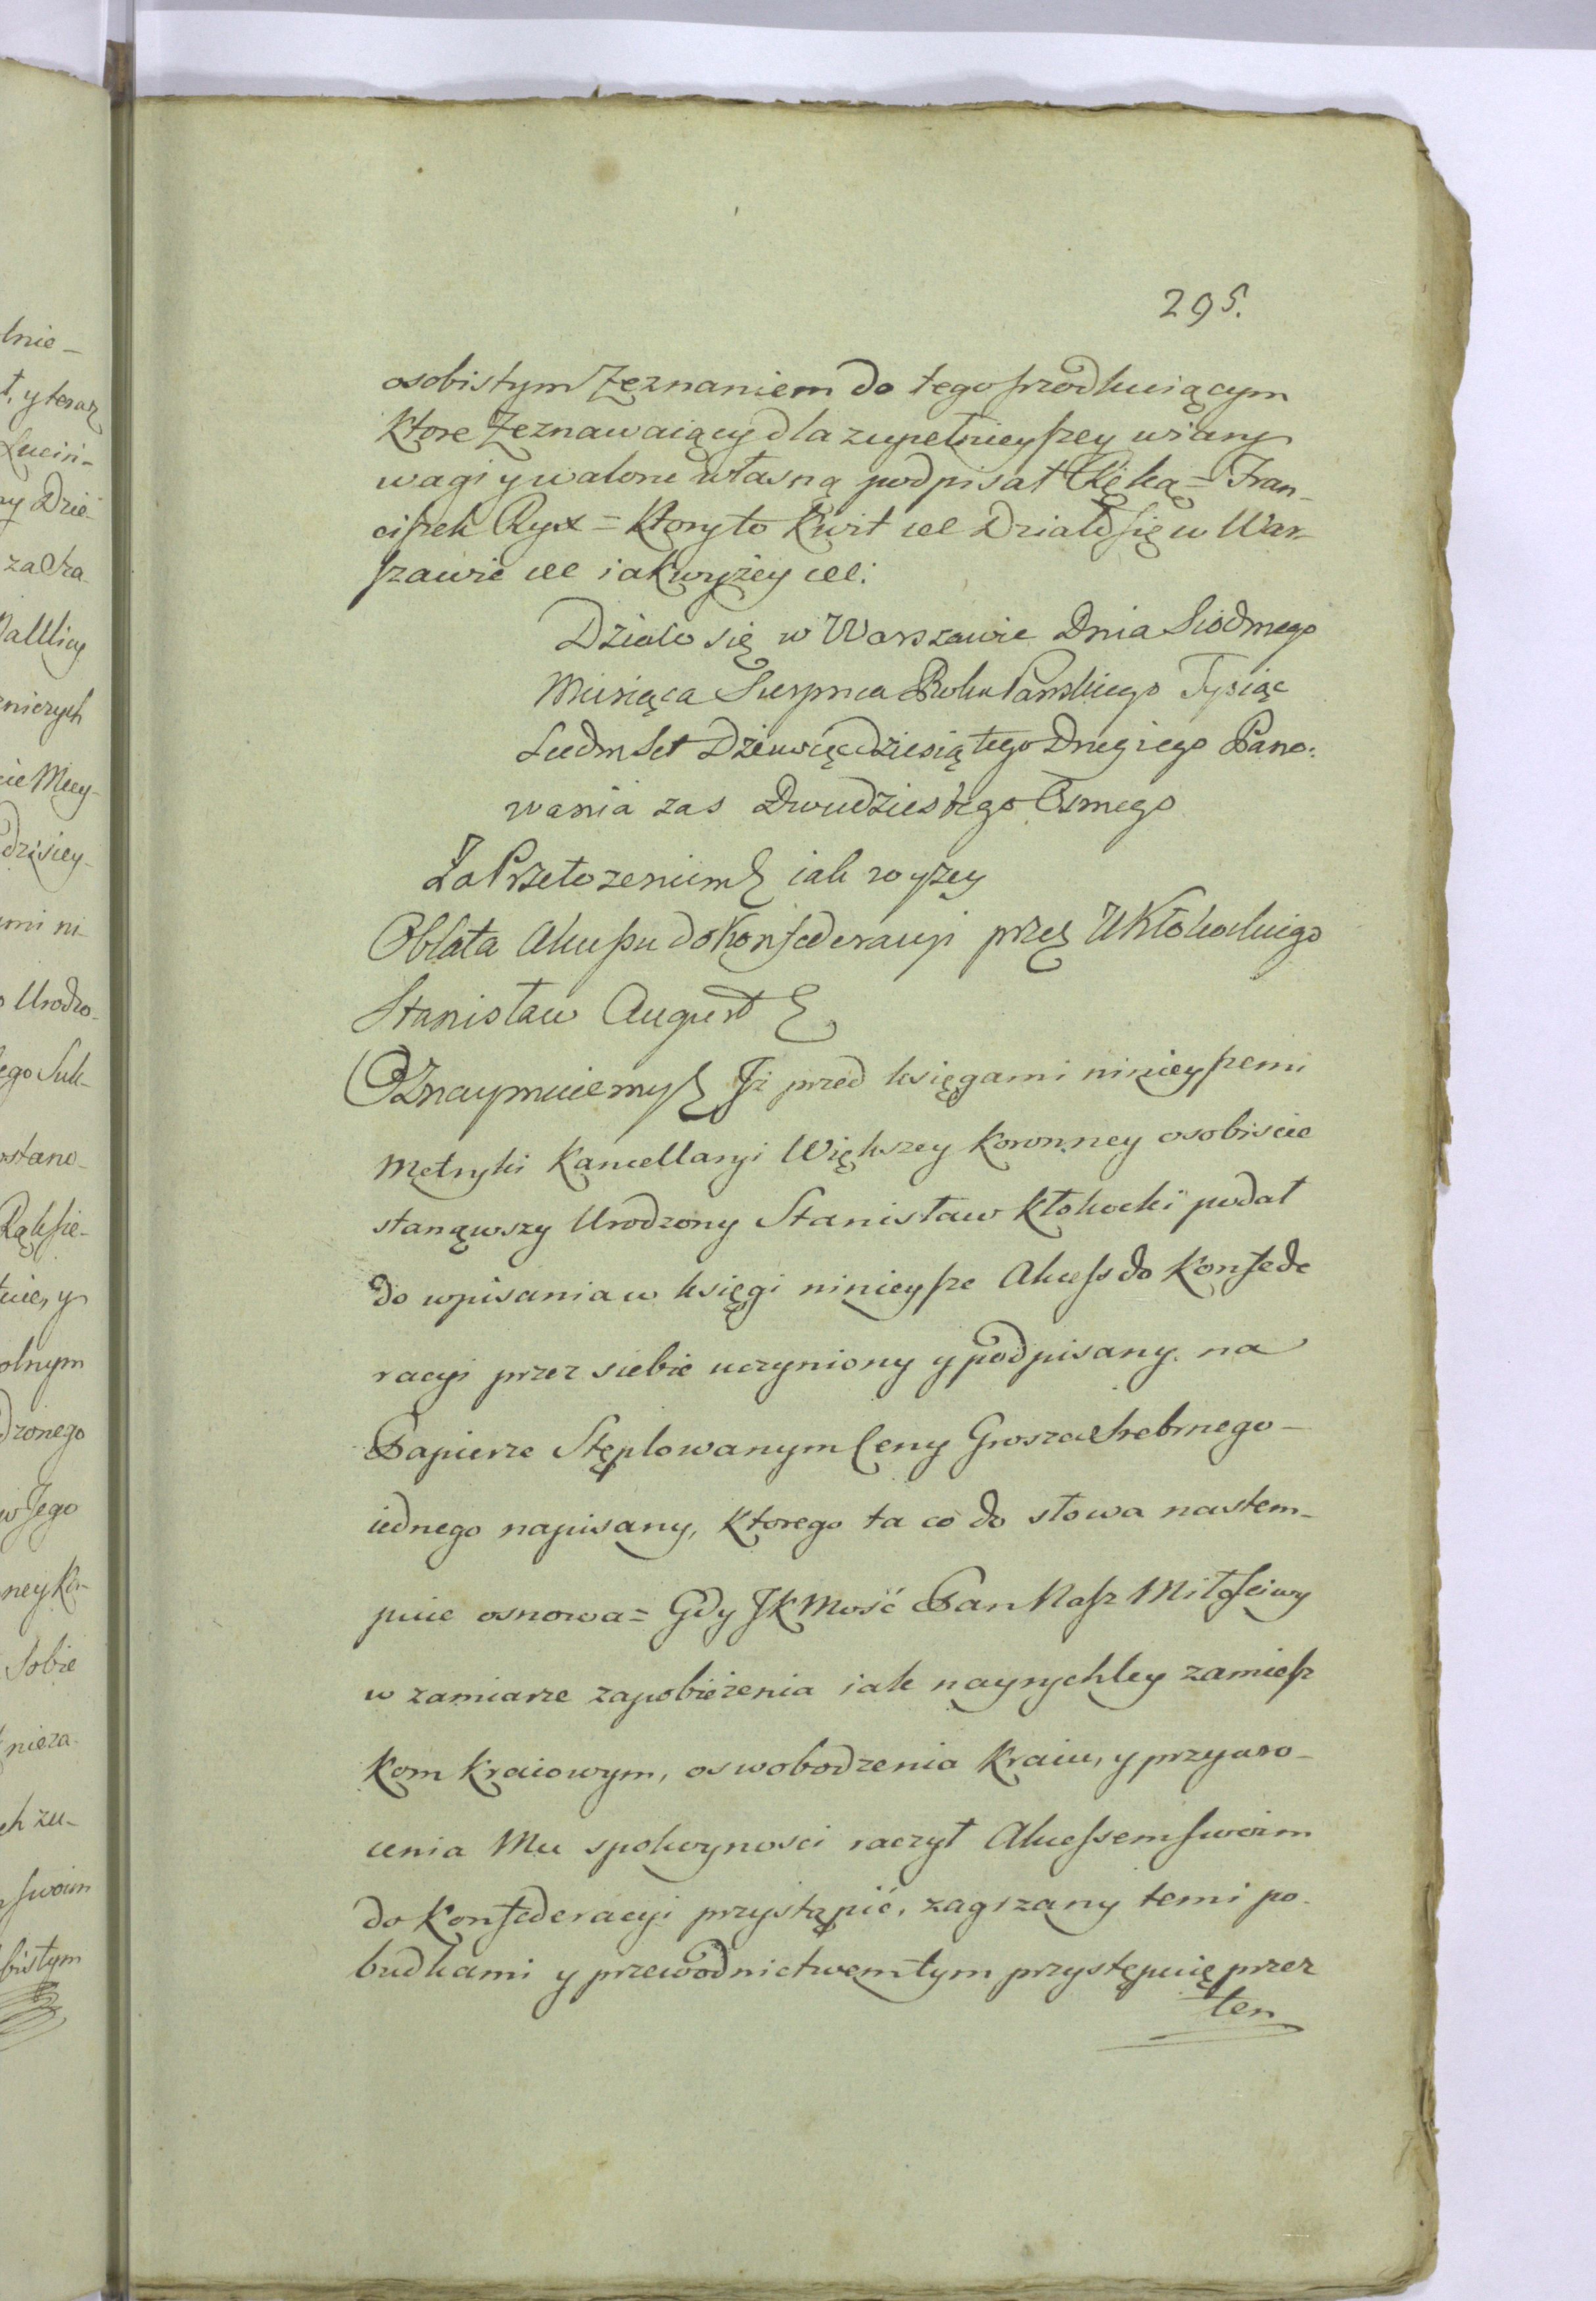 295.
osobistym Zeznaniem do tego srzodkuiącym
Ktore Zeznawaiący dla zupełnieyszey wiary
wagi y waloru własną podpisał Ręką = Fran-
ciszek Ryx = Ktory to Kwit etc Działo się w War-
szawie etc iak wyżey etc:
Działo się w Warszawie Dnia Siodmego
Miesiąca Sierpnia Roku Pańskiego Tysiąc
Siedmset Dziewięcdziesiątego Drugiego Pano:
wania zas Dwudziestego Osmego
Za Przełozeniem iak wyzey
Oblata Akcessu do Konfederacyi przez U Kłokockiego
Stanisław August
Oznaymuiemy Iż przed księgami ninieyszemi
Metryki Kancellaryi Większey Koronney osobiscie
stanąwszy Urodzony Stanisław Kłokocki podał
do wpisania w księgi ninieysze Akcess do Konfede
racyi przez siebie uczyniony y podpisany na
Papierze Stęplowanym Ceny Grosza Srebrnego -
iednego napisany, ktorego ta co do słowa nastem-
puie osnowa = Gdy JK Mość Pan Nasz Miłościwy
w zamiarze zapobieżenia iak nayrychley zamiesz
kom kraiowym, oswobodzenia kraiu, y przywro-
cenia Mu spokoyności raczył Akcessem swoim
do Konfederacyi przystąpić, zagrzany temi po-
budkami y przewodnictwem tym przystępuię przez
ten
lnie -
ł, y teraz
Lucin-
ny Dzie-
znicznych
dzisiey-
o Urodzo-
ego Suk-
stano-
olnym
dzonego
w Jego
Sobie
nieza-
ch zu-
swoim
bistym